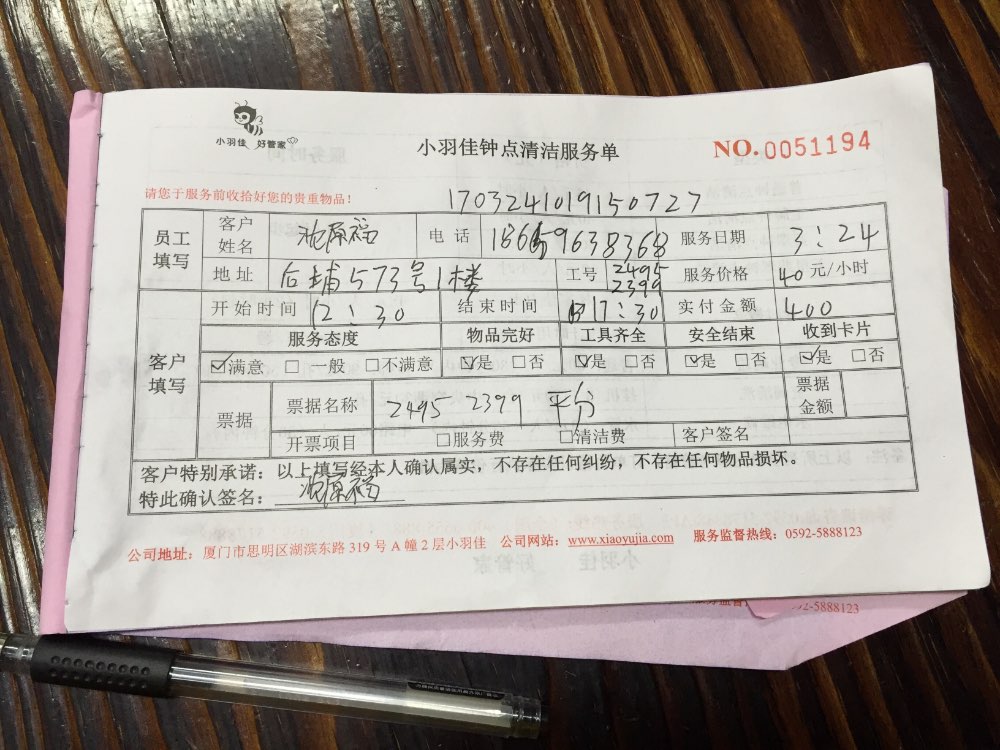 小羽佳 好管家
小羽佳钟点清洁服务单
NO.0051194
请您于服务前收拾好您的贵重物品！
1703241019150727
员工填写 客户姓名 池原福 电话 18659638368 服务日期 3:24
地址 后埔573号1楼 工号 2495 2399 服务价格 40元/小时
客户填写 开始时间 12:30 结束时间 17:30 实付金额 400
服务态度 物品完好 工具齐全 安全结束 收到卡片
☑满意 □一般 □不满意 ☑是 □否 ☑是 □否 ☑是 □否 ☑是 □否
票据 票据名称 2495 2399 平分 票据金额
开票项目 □服务费 □清洁费 客户签名
客户特别承诺：以上填写经本人确认属实，不存在任何纠纷，不存在任何物品损坏。
特此确认签名：池原福
公司地址：厦门市思明区湖滨东路319号A幢2层小羽佳 公司网站：www.xiaoyujia.com 服务监督热线：0592-5888123
92-5888123